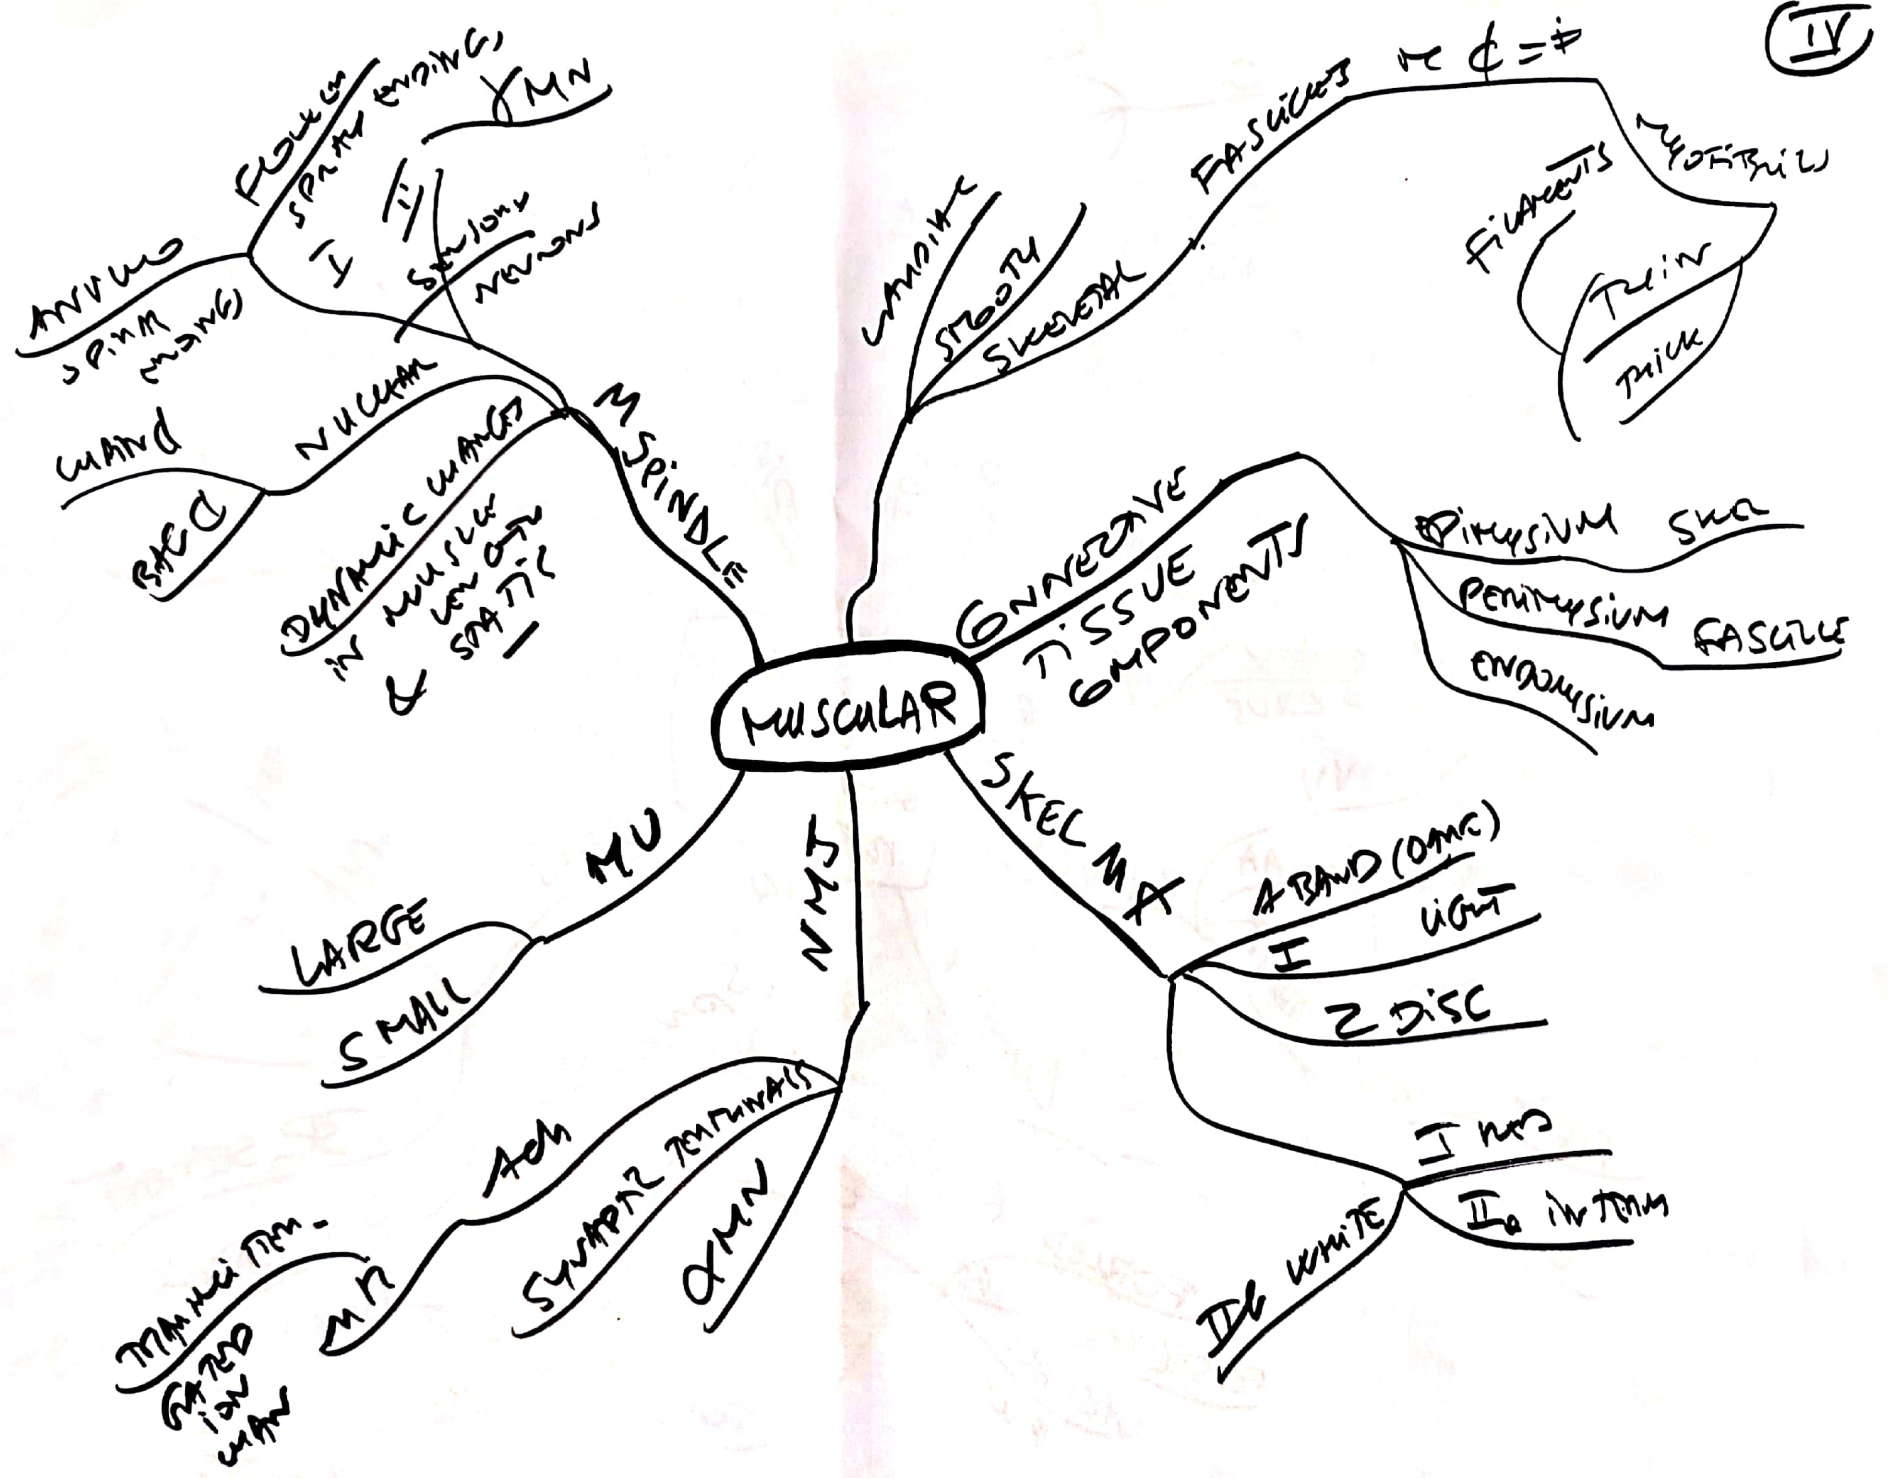 IV
MUSCULAR
CARDIAC
SMOOTH
SKELETAL
FASCICLES
MYOFIBRILS
FILAMENTS
THIN
THICK
CONNECTIVE
TISSUE
COMPONENTS
EPIMYSIUM SKEL
PERIMYSIUM
FASCICLE
ENDOMYSIUM
SKEL MA
A BAND (DARK)
I LIGHT
Z DISC
I RED
IIa INTERM
IIb WHITE
NMJ
ACh
NR
TRANSMITTER-
GATED
ION
CHAN
SYNAPTIC TERMINALS
αMN
MU
LARGE
SMALL
M SPINDLE
DYNAMIC CHANGES
IN MUSCLE
LENGTH
& STATIC
NUCLEAR
CHAIN
BAG
SENSORY
NEURONS
I
II
γMN
FLOWER
SPRAY ENDINGS
ANNULO
SPIRAL
ENDINGS